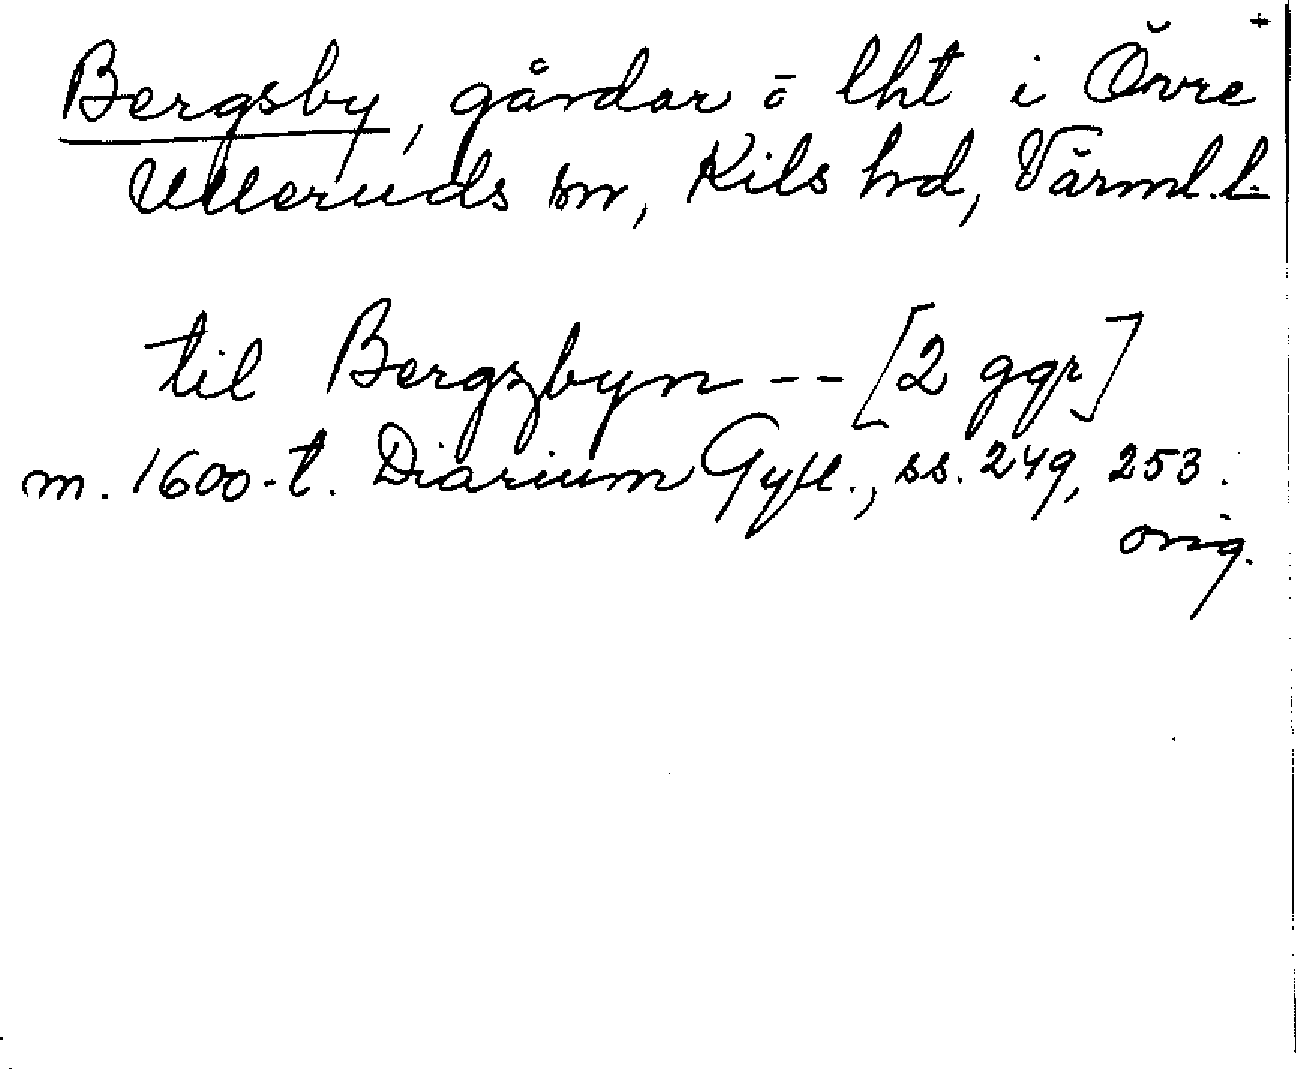 +
Bergsby, gårdar o lht i Övre
Ulleruds sn, Kils hd, Värml. l.
til Bergzbyn -- [2 ggr]
m. 1600-t. Diarium Gyll., ss. 249, 253.
orig.